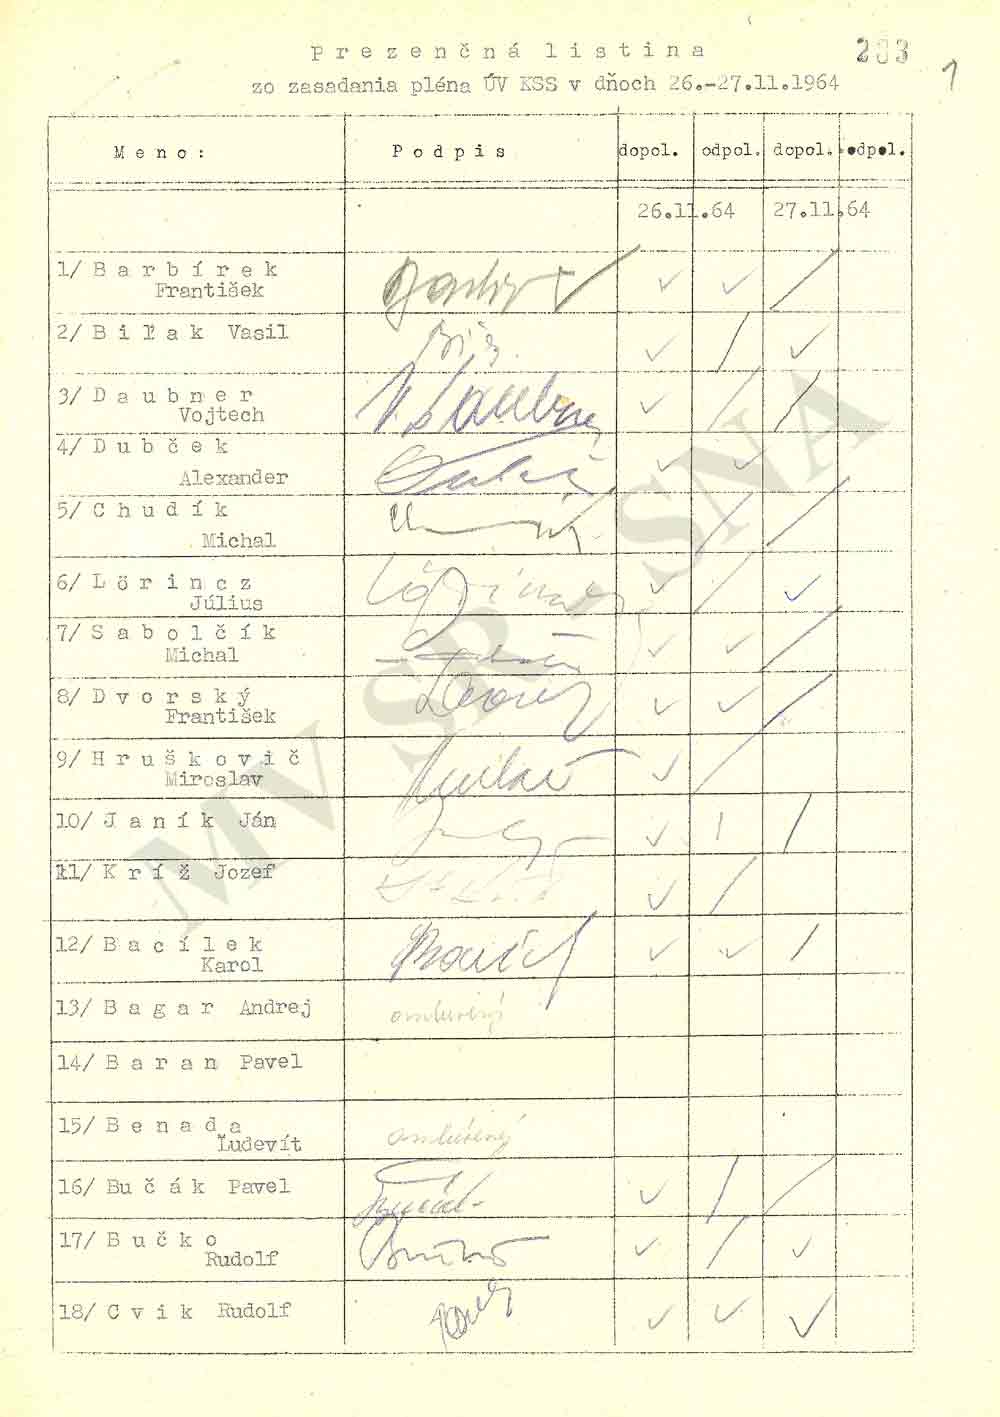 P r e z e n č n á  l i s t i n a
283
1
zo zasadania pléna ÚV KSS v dňoch 26.-27.11.1964
M e n o :  P o d p i s  dopol.  odpol.  dopol.  odpol.
26.11.64  27.11.64
1/ B a r b í r e k
František
2/ B i ľ a k  Vasil
3/ D a u b n e r
Vojtech
V. Daubner
4/ D u b č e k
Alexander
5/ C h u d í k
Michal
6/ L ö r i n c z
Július
7/ S a b o l č í k
Michal
8/ D v o r s k ý
František
9/ H r u š k o v i č
Miroslav
10/ J a n í k  Ján
11/ K r í ž  Jozef
12/ B a c í l e k
Karol
13/ B a g a r  Andrej  omluvený
14/ B a r a n  Pavel
15/ B e n a d a
Ľudevít  omluvený
16/ Bu č á k  Pavel
17/ B u č k o
Rudolf
18/ C v i k  Rudolf
MV SR - SNA